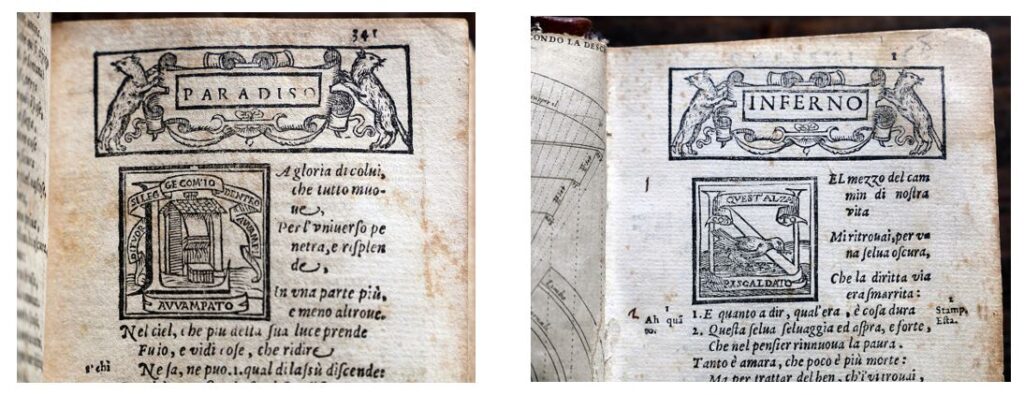 341
PARADISO
SI LEG GE COM'IO DENTRO
AVVAMPATO
A gloria di colui,
che tutto muo-
ue,
Per l'vniuerso pe
netra, e risplen
de,
In vna parte più,
e meno altroue.
Nel ciel, che più della sua luce prende
Fuio, e vidi cose, che ridire
s' chi
Ne sa, ne puo.1.qual di lassù discende:
CONDO LA DESC
1
INFERNO
QUEST'ALZA
RISCALDATO
EL mezzo del cam
min di nostra
vita
Mi ritrouai, per v
na selua oscura,
Che la diritta via
era smarrita:
Ah quā
to.
1. E quanto a dir, qual'era, è cosa dura
1
Stamp.
Esta.
2. Questa selua seluaggia ed aspra, e forte,
Che nel pensier rinnuoua la paura.
Tanto è amara, che poco è più morte:
Ma per trattar del ben, ch'i'vi trouai,